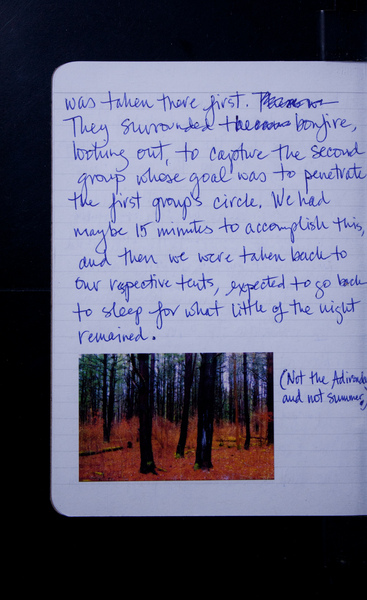 was taken there first.
They surrounded bonfire,
looking out, to capture the second
group whose goal was to penetrate
the first group's circle. We had
maybe 15 minutes to accomplish this,
and then we were taken back to
our respective tents, expected to go back
to sleep for what little of the night
remained.
(Not the Adironda
and not summer,)